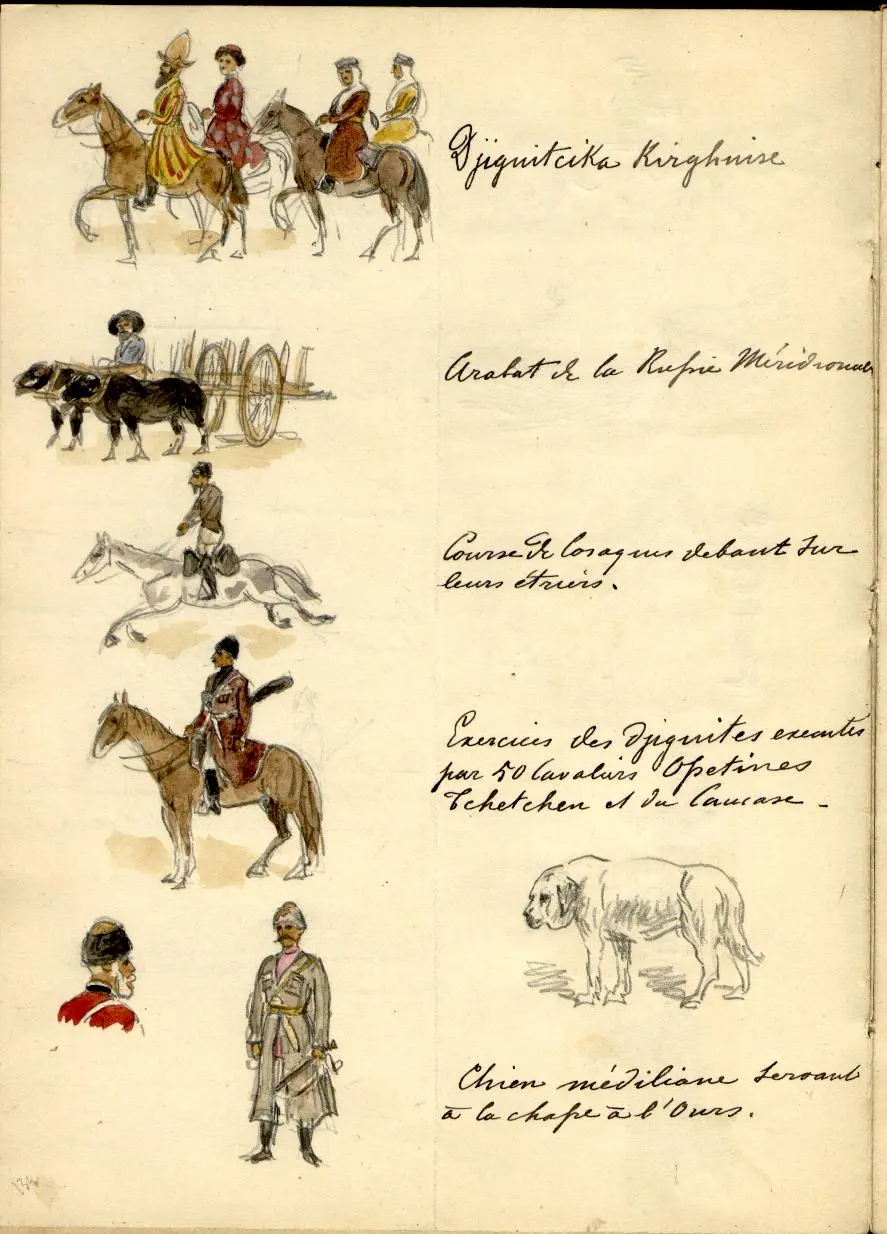 Djiguitcika Kirghuise
Arabat de la Russie Méridionale
Course de Cosaques debout sur
leurs étriers.
Exercices des Djiguites executés
par 50 Cavaliers Ossetines
Tchetchen et du Caucase -
Chien médiliane servant
à la chasse à l'Ours.